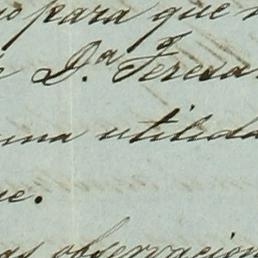 para que
D.ª Teresa
una utilida
ue.
as observacion